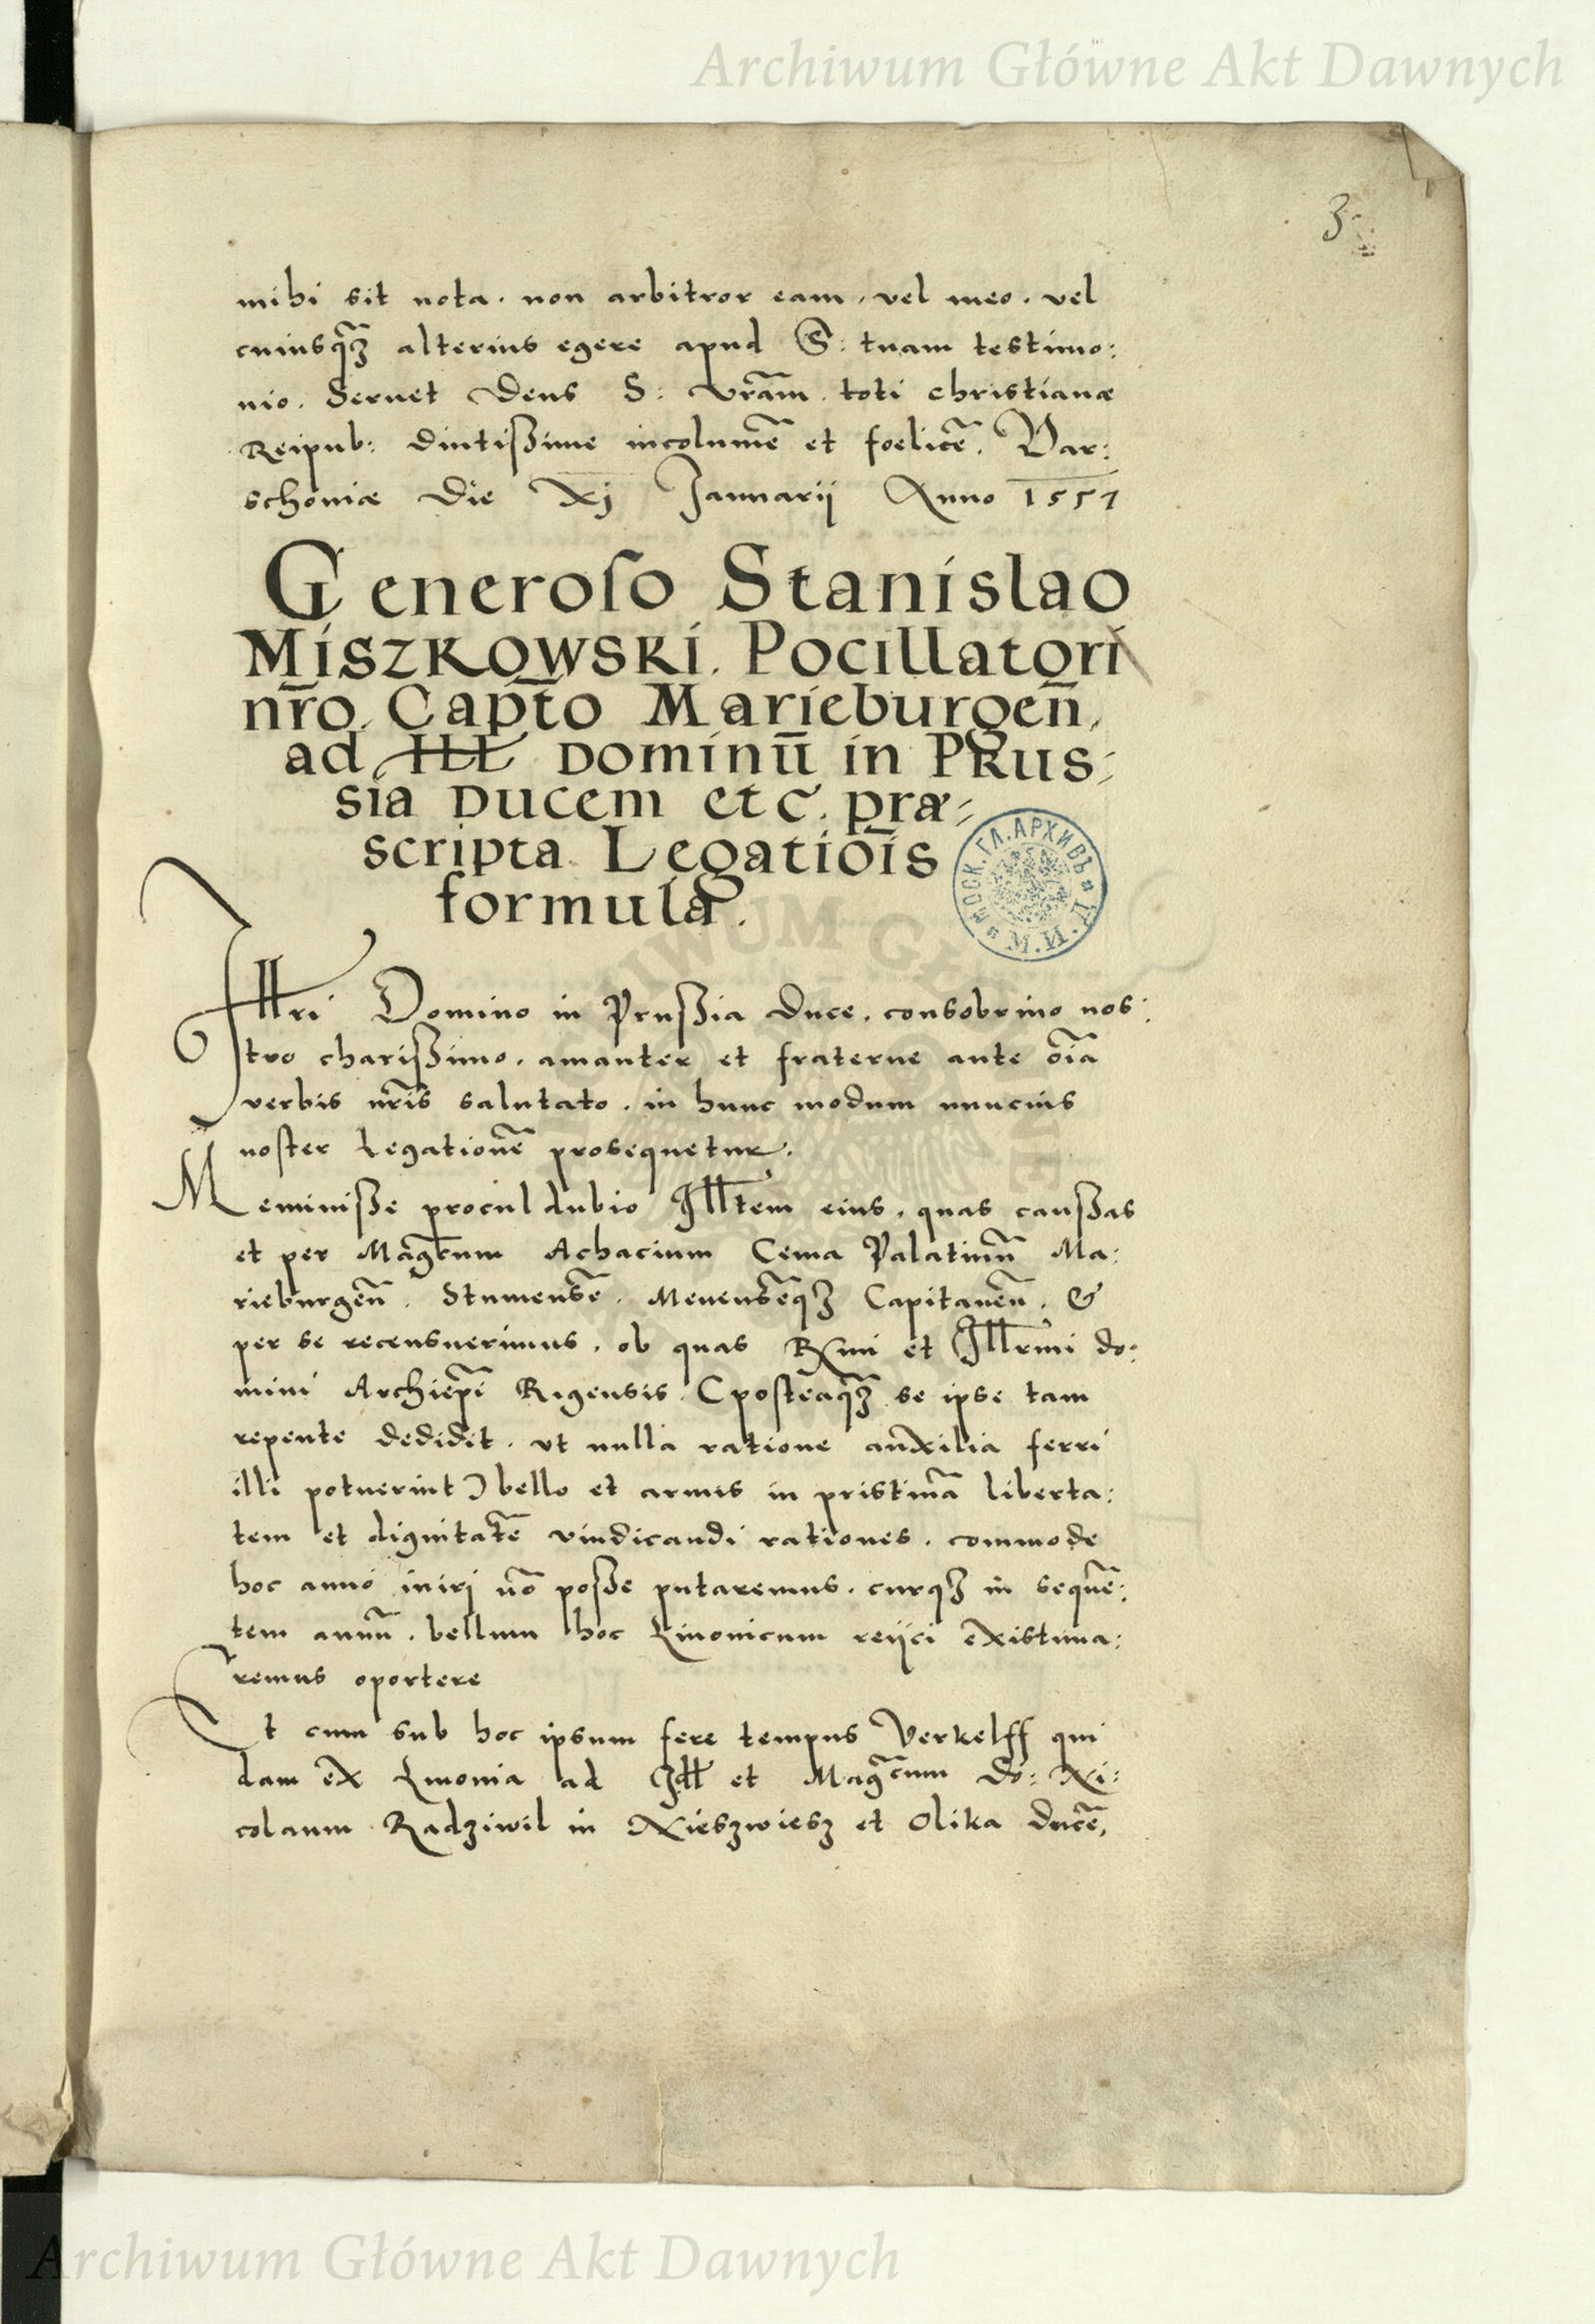 Archiwum Główne Akt Dawnych
3
mihi sit nota. non arbitror eam, vel meo. vel
cuiusq̃ꝫ alterius egere apud S: tuam testimo:
nio. Seruet Deus S: vr̃am toti christianæ
Reipub: diutißime incolumẽ et foelicẽ. Var:
schoviæ Die XJ Januarij Anno 1557
Generoſo Stanislao
Miszkowski. Pocillatori
nr̃o. Capt̃o Marieburgeñ,
ad Ill Dominũ in Prus:
sia Ducem etc. præ:
scripta Legatiõis
formula.
Illri Domino in Prußia Duce. consobrino nos:
tro charißimo. amanter et fraterne ante oĩa
verbis nr̃is salutato. in hunc modum nuncius
noster Legationẽ prosequetur.
Meminiße procul dubio Illtem eius. quas caußas
et per Magcum Achacium Cema Palatinũ Ma:
rieburgeñ. Stumensẽ. Meuensẽqꝫ Capitaneũ. &
per se recensuerimus. ob quas Rxmi et Illrmi do:
mini Archiep̃i Rigensis (posteaq̃ꝫ se ipse tam
repente dedidit. ut nulla ratione auxilia ferri
illi potuerint) bello et armis in pristinã liberta:
tem et dignitatẽ vindicandi rationes. commode
hoc anno inirj nõ poße putaremus. curqꝫ in sequẽ:
tem annũ. bellum hoc Liuonicum reijci existima:
remus oportere
Et cum sub hoc ipsum fere tempus Verkelff qui
dam ex Liuonia ad Ill et Magcum Do: Ni:
colaum Radziwil in Nieszwiesz et Olika Ducẽ,
МОСК. ГЛ. АРХИВЪ М. И. Д.
Archiwum Główne Akt Dawnych